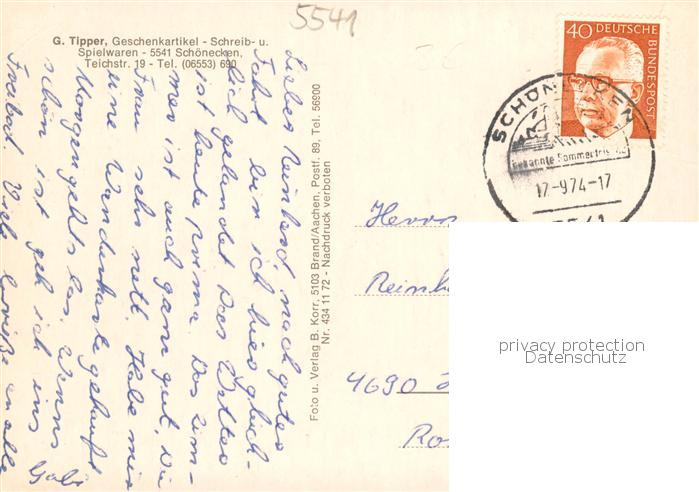 5541
G. Tipper, Geschenkartikel - Schreib- u.
Spielwaren - 5541 Schönecken,
Teichstr. 19 - Tel. (06553) 690
Lieber Reinhard nach guter
Fahrt bin ich hier glück-
lich gelandet. Das Wetter
ist heute prima. Das Zim-
mer ist auch ganz gut, die
Frau sehr nett. Habe mir
eine Wanderkarte gekauft
Morgen geht's los. Wenns
schön ist geh ich ins
Freibad. Viele Grüße an alle
Gabi
Foto u. Verlag B. Korr, 5103 Brand/Aachen, Postf. 89, Tel. 56900
Nr. 434 11 72 - Nachdruck verboten
40 DEUTSCHE
BUNDESPOST
SCHÖNECKEN
bekannte Sommerfrische
17.-9.74-17
5541
Herrn
Reinh
4690
Ro
privacy protection
Datenschutz